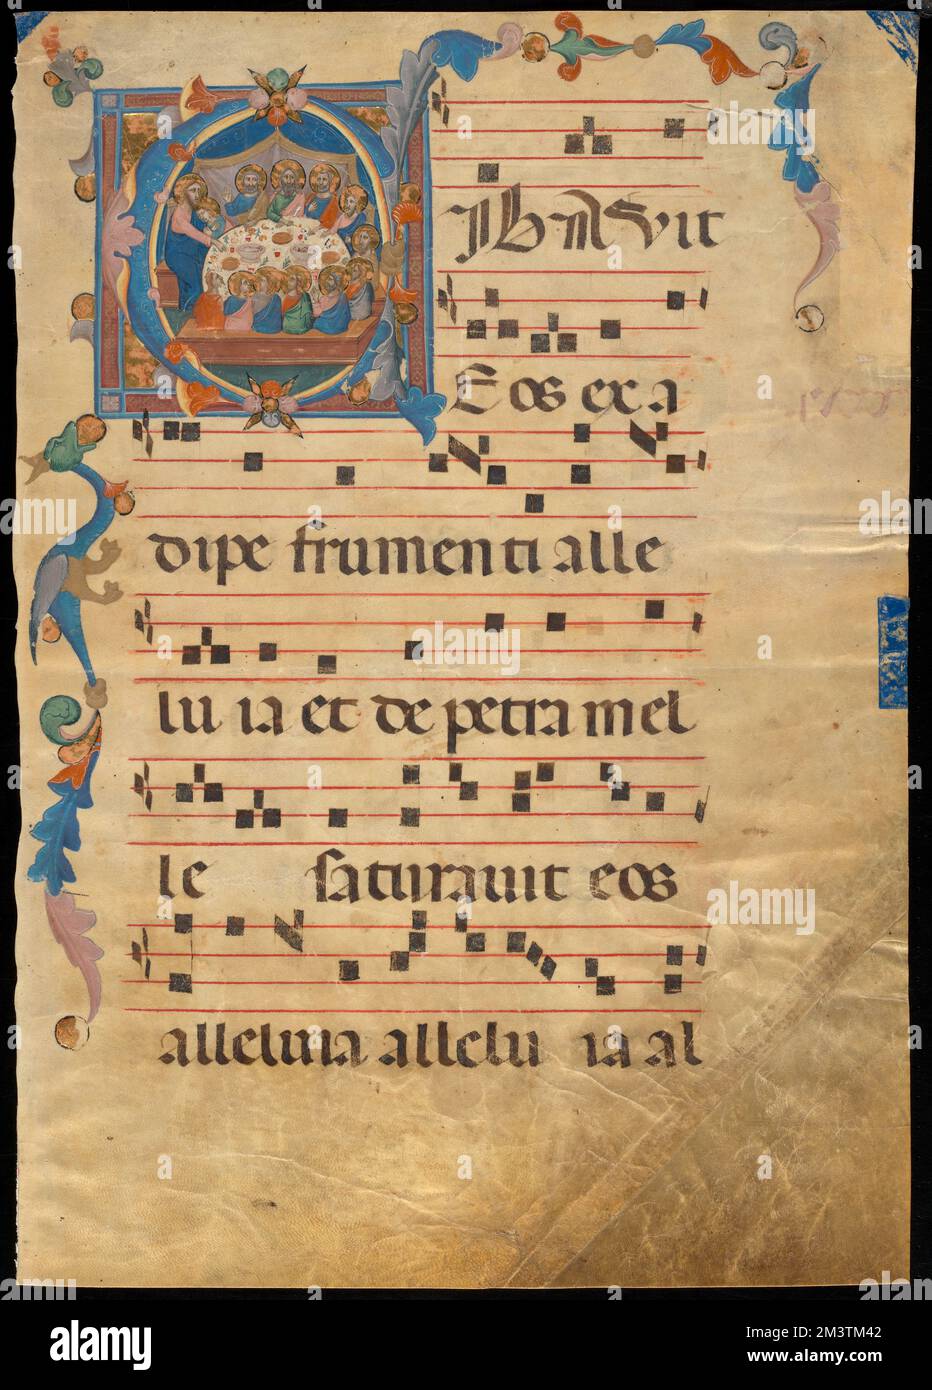 CIBAVIT
Eos ex a
dipe frumenti alle
lu ia et de petra mel
le saturavit eos
alleluia allelu ia al
alamy
Image ID: 2M3TM42
www.alamy.com